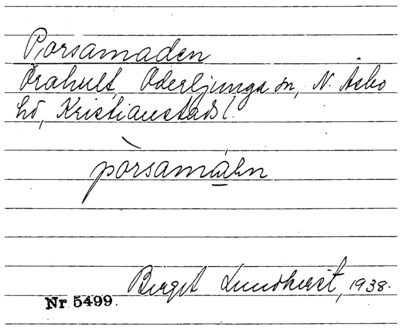 Porsamaden
Örahult, Oderljunga sn, N. Åsbo
hd, Kristianstads l.
pòrsamáen
Birgit Lundkvist, 1938.
Nr 5499.